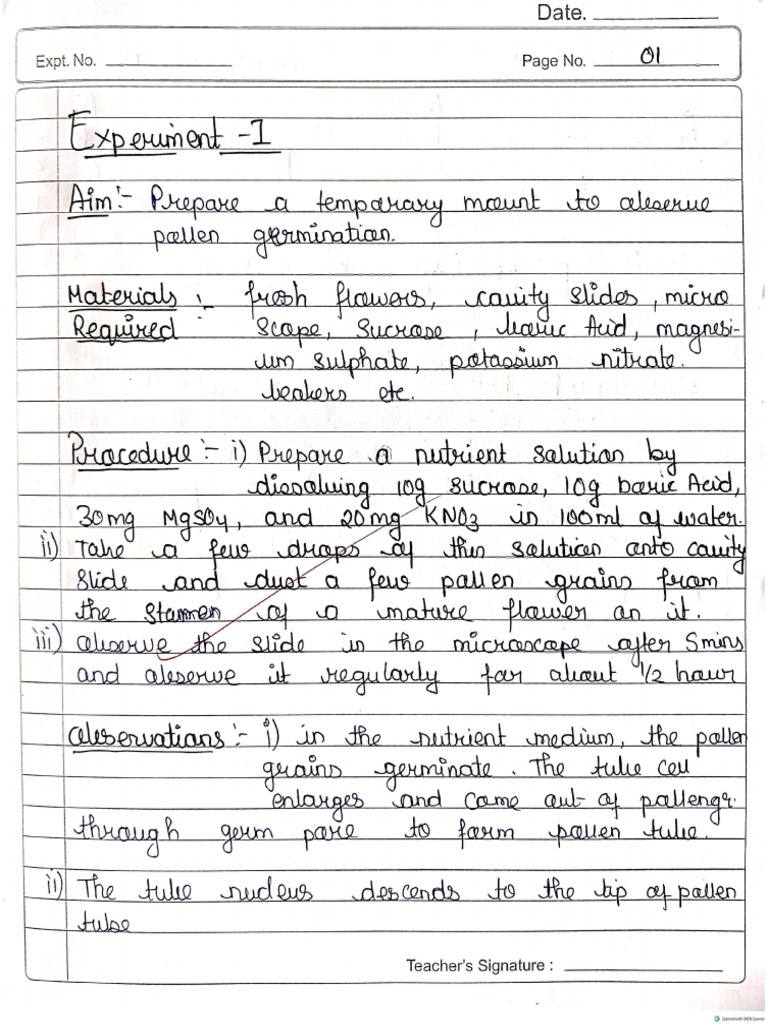 Date.
Expt. No. Page No. 01
Experiment -1
Aim :- Prepare a temparary mount to observe
pollen germination.
Materials :- fresh flowers, cavity slides, micro
Required scope, sucrose, boric Acid, magnesi-
um sulphate, potassium nitrate.
beakers etc.
Procedure :- i) Prepare a nutrient solution by
dissolving 10g sucrose, 10g boric Acid,
30mg MgSO4, and 20mg KNO3 in 100ml of water.
ii) Take a few drops of this solution onto cavity
slide and dust a few pollen grains from
the stammen of a mature flower on it.
iii) observe the slide in the microscope after 5mins
and observe it regularly for about 1/2 hour
observations :- i) in the nutrient medium, the pollen
grains germinate. The tube cell
enlarges and come out of pollengr.
through germ pore to form pollen tube.
ii) The tube nucleus descends to the tip of pollen
tube
Teacher's Signature :
Scanned with OKEN Scanner